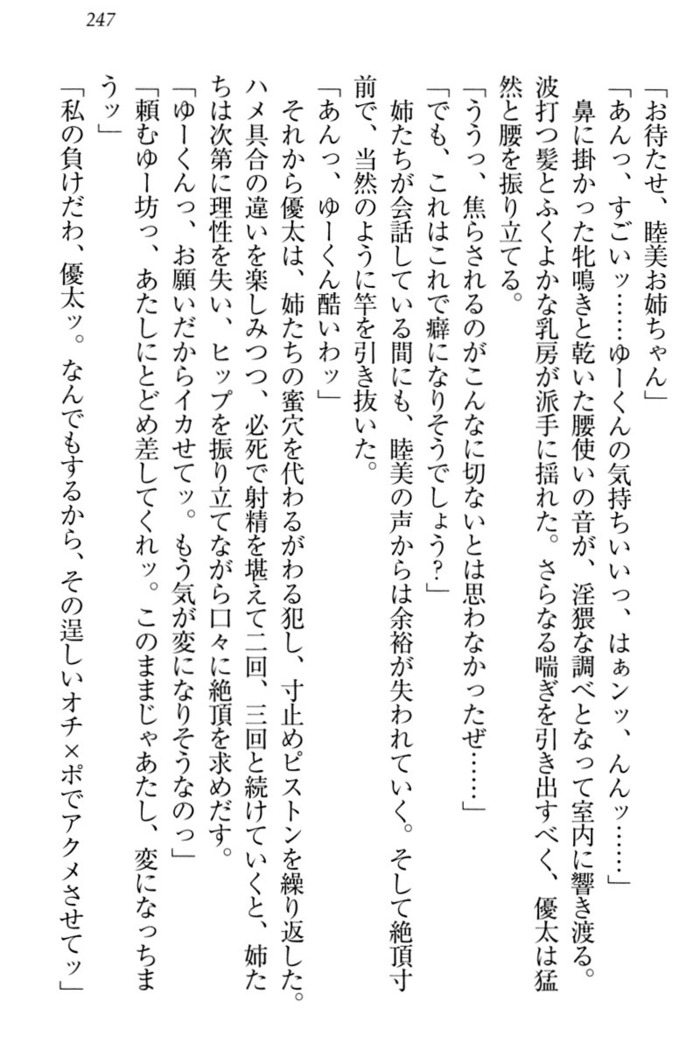 247
「お待たせ、睦美お姉ちゃん」
「あんっ、すごいッ……ゆーくんの気持ちいいっ、はぁンッ、んんッ……」
鼻に掛かった牝鳴きと乾いた腰使いの音が、淫猥な調べとなって室内に響き渡る。
波打つ髪とふくよかな乳房が派手に揺れた。さらなる喘ぎを引き出すべく、優太は猛
然と腰を振り立てる。
「ううっ、焦らされるのがこんなに切ないとは思わなかったぜ……」
「でも、これはこれで癖になりそうでしょう？」
姉たちが会話している間にも、睦美の声からは余裕が失われていく。そして絶頂寸
前で、当然のように竿を引き抜いた。
「あんっ、ゆーくん酷いわッ」
それから優太は、姉たちの蜜穴を代わるがわる犯し、寸止めピストンを繰り返した。
ハメ具合の違いを楽しみつつ、必死で射精を堪えて二回、三回と続けていくと、姉た
ちは次第に理性を失い、ヒップを振り立てながら口々に絶頂を求めだす。
「ゆーくんっ、お願いだからイカせてッ。もう気が変になりそうなのっ」
「頼むゆー坊っ、あたしにとどめ差してくれッ。このままじゃあたし、変になっちま
うッ」
「私の負けだわ、優太ッ。なんでもするから、その逞しいオチ×ポでアクメさせてッ」